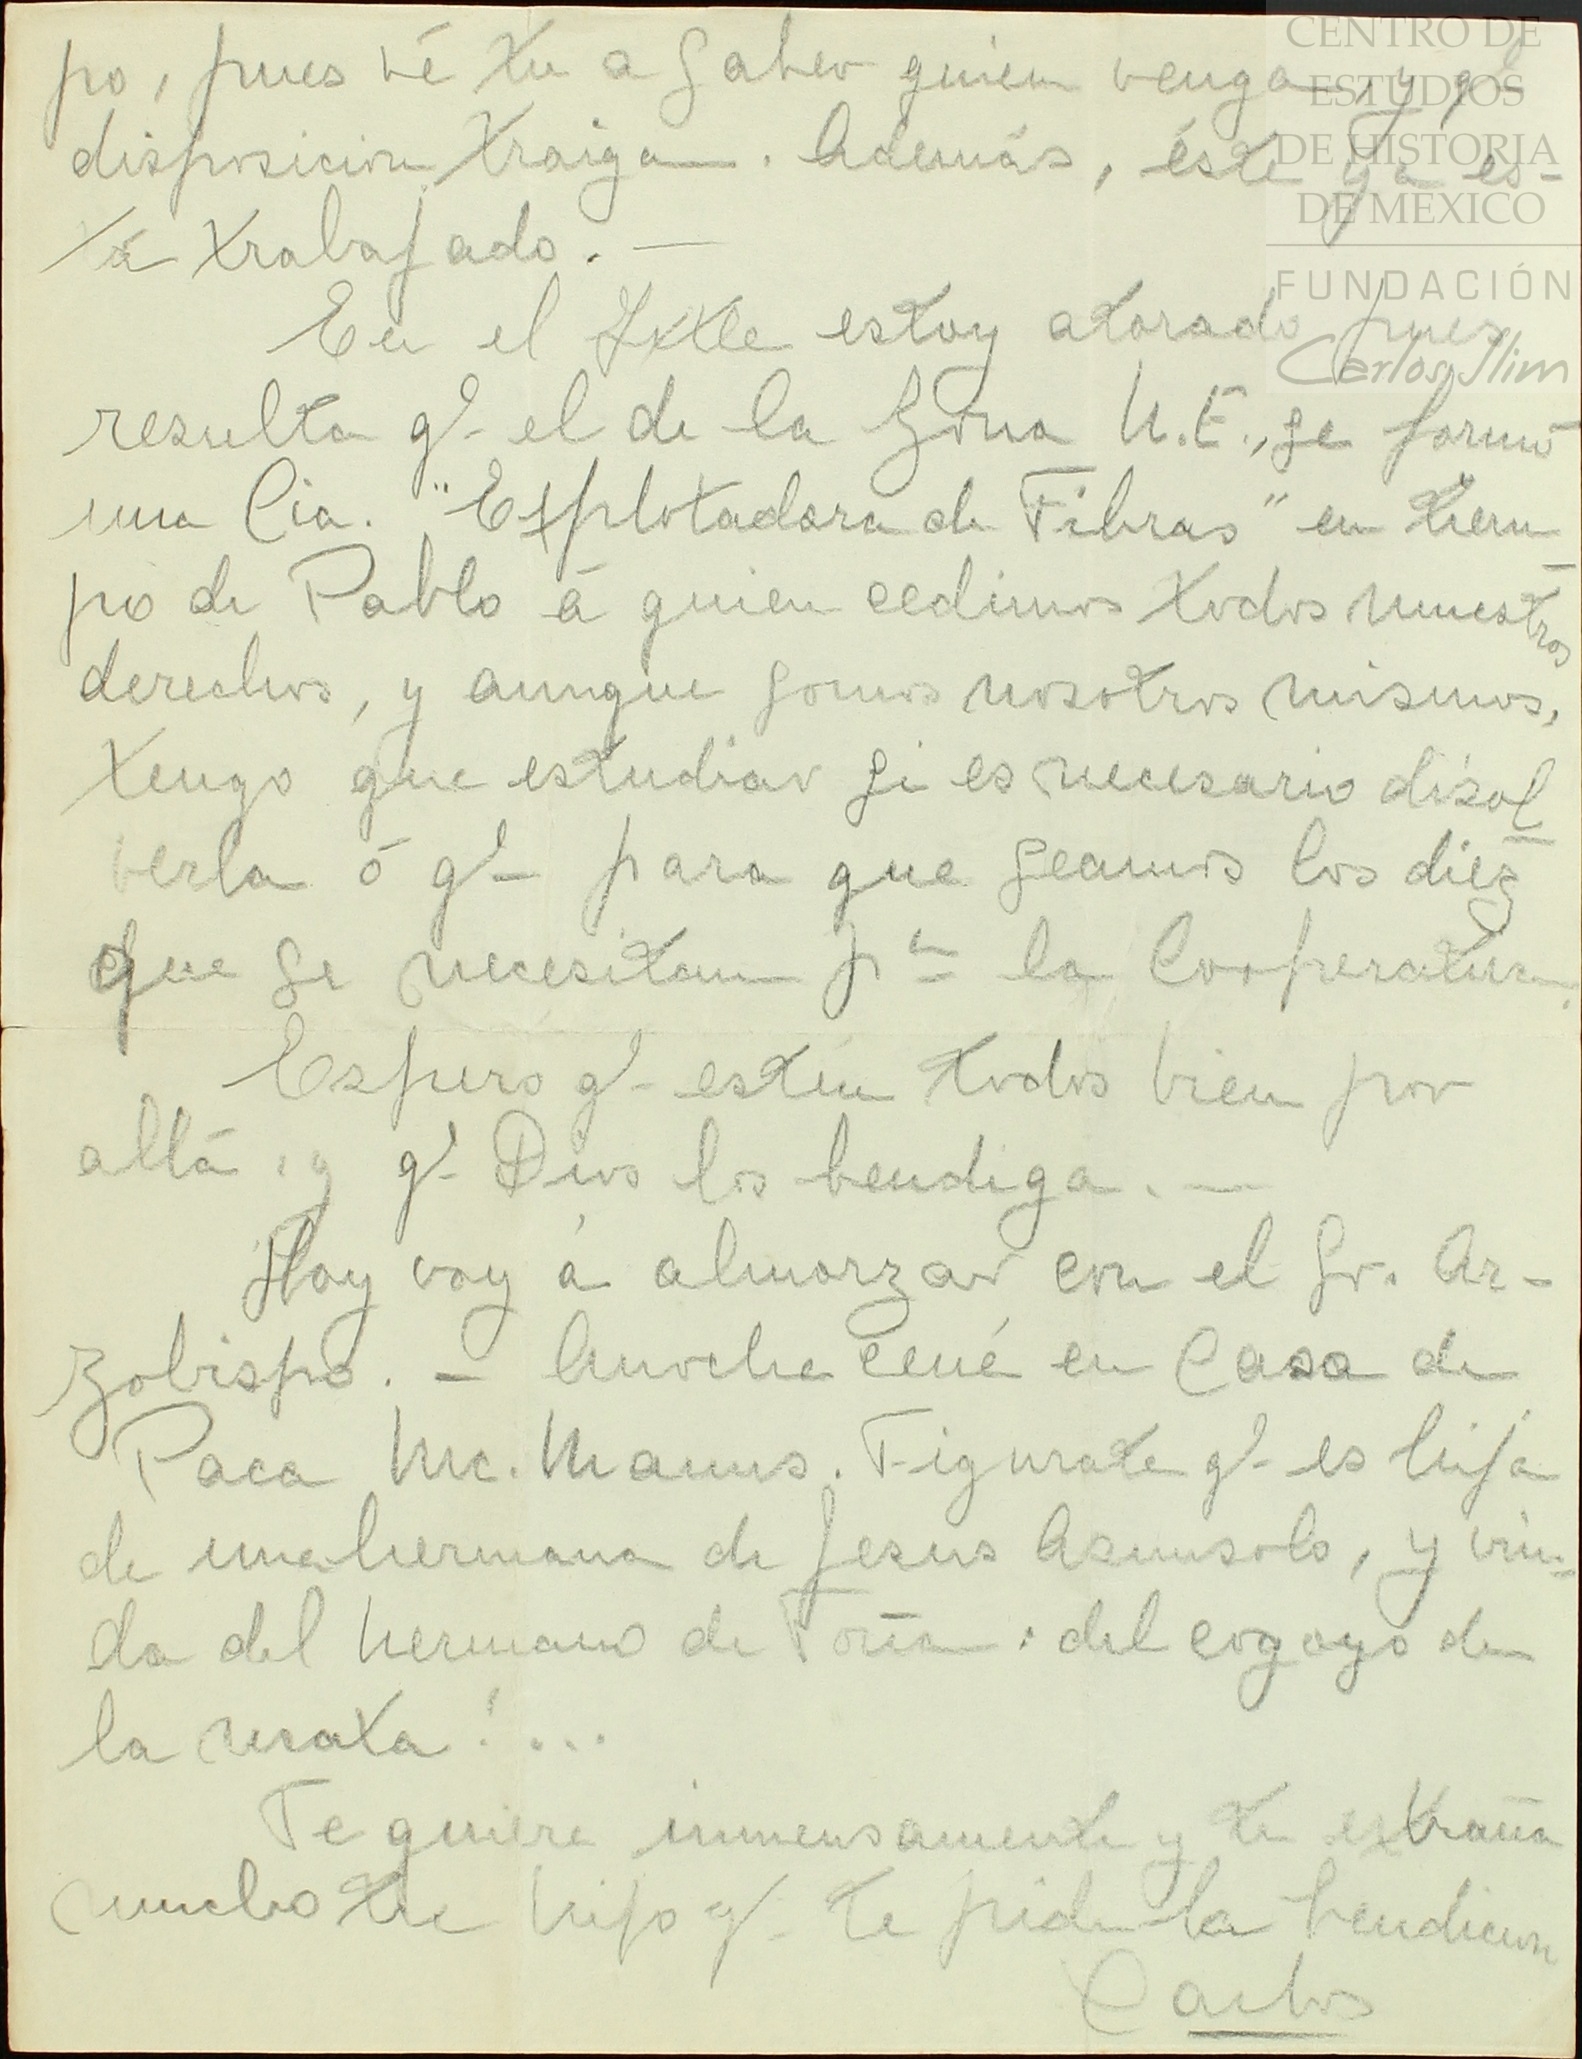 po, pues vé tu a saber quien venga, y q'
disposicion traiga. Además, éste ya es-
tá trabajado. —
En el Ixtle estoy atorado pues
resulta q' el de la zona N.E., se formó
una Cia. "Explotadora de Fibras" en tiem
po de Pablo á quien cedimos todos nuestros
derechos, y aunque somos nosotros mismos,
tengo que estudiar si es necesario disol
verla ó q' para que seamos los diez
que se necesitan pa la Cooperativa.
Espero q' estén todos bien por
allá, y q' Dios los bendiga. —
Hoy voy á almorzar con el Sr. Ar-
zobispo. — Anoche cené en Casa de
Paca Mc. Manus. Figurate q' es hija
de una hermana de Jesus Asunsolo, y viu-
da del hermano de Toña: del cogoyo de
la mata!...
Te quiere inmensamente y te extraña
mucho tu hijo q' te pide la bendicion
Carlos
CENTRO DE
ESTUDIOS
DE HISTORIA
DE MEXICO
FUNDACIÓN
Carlos Slim